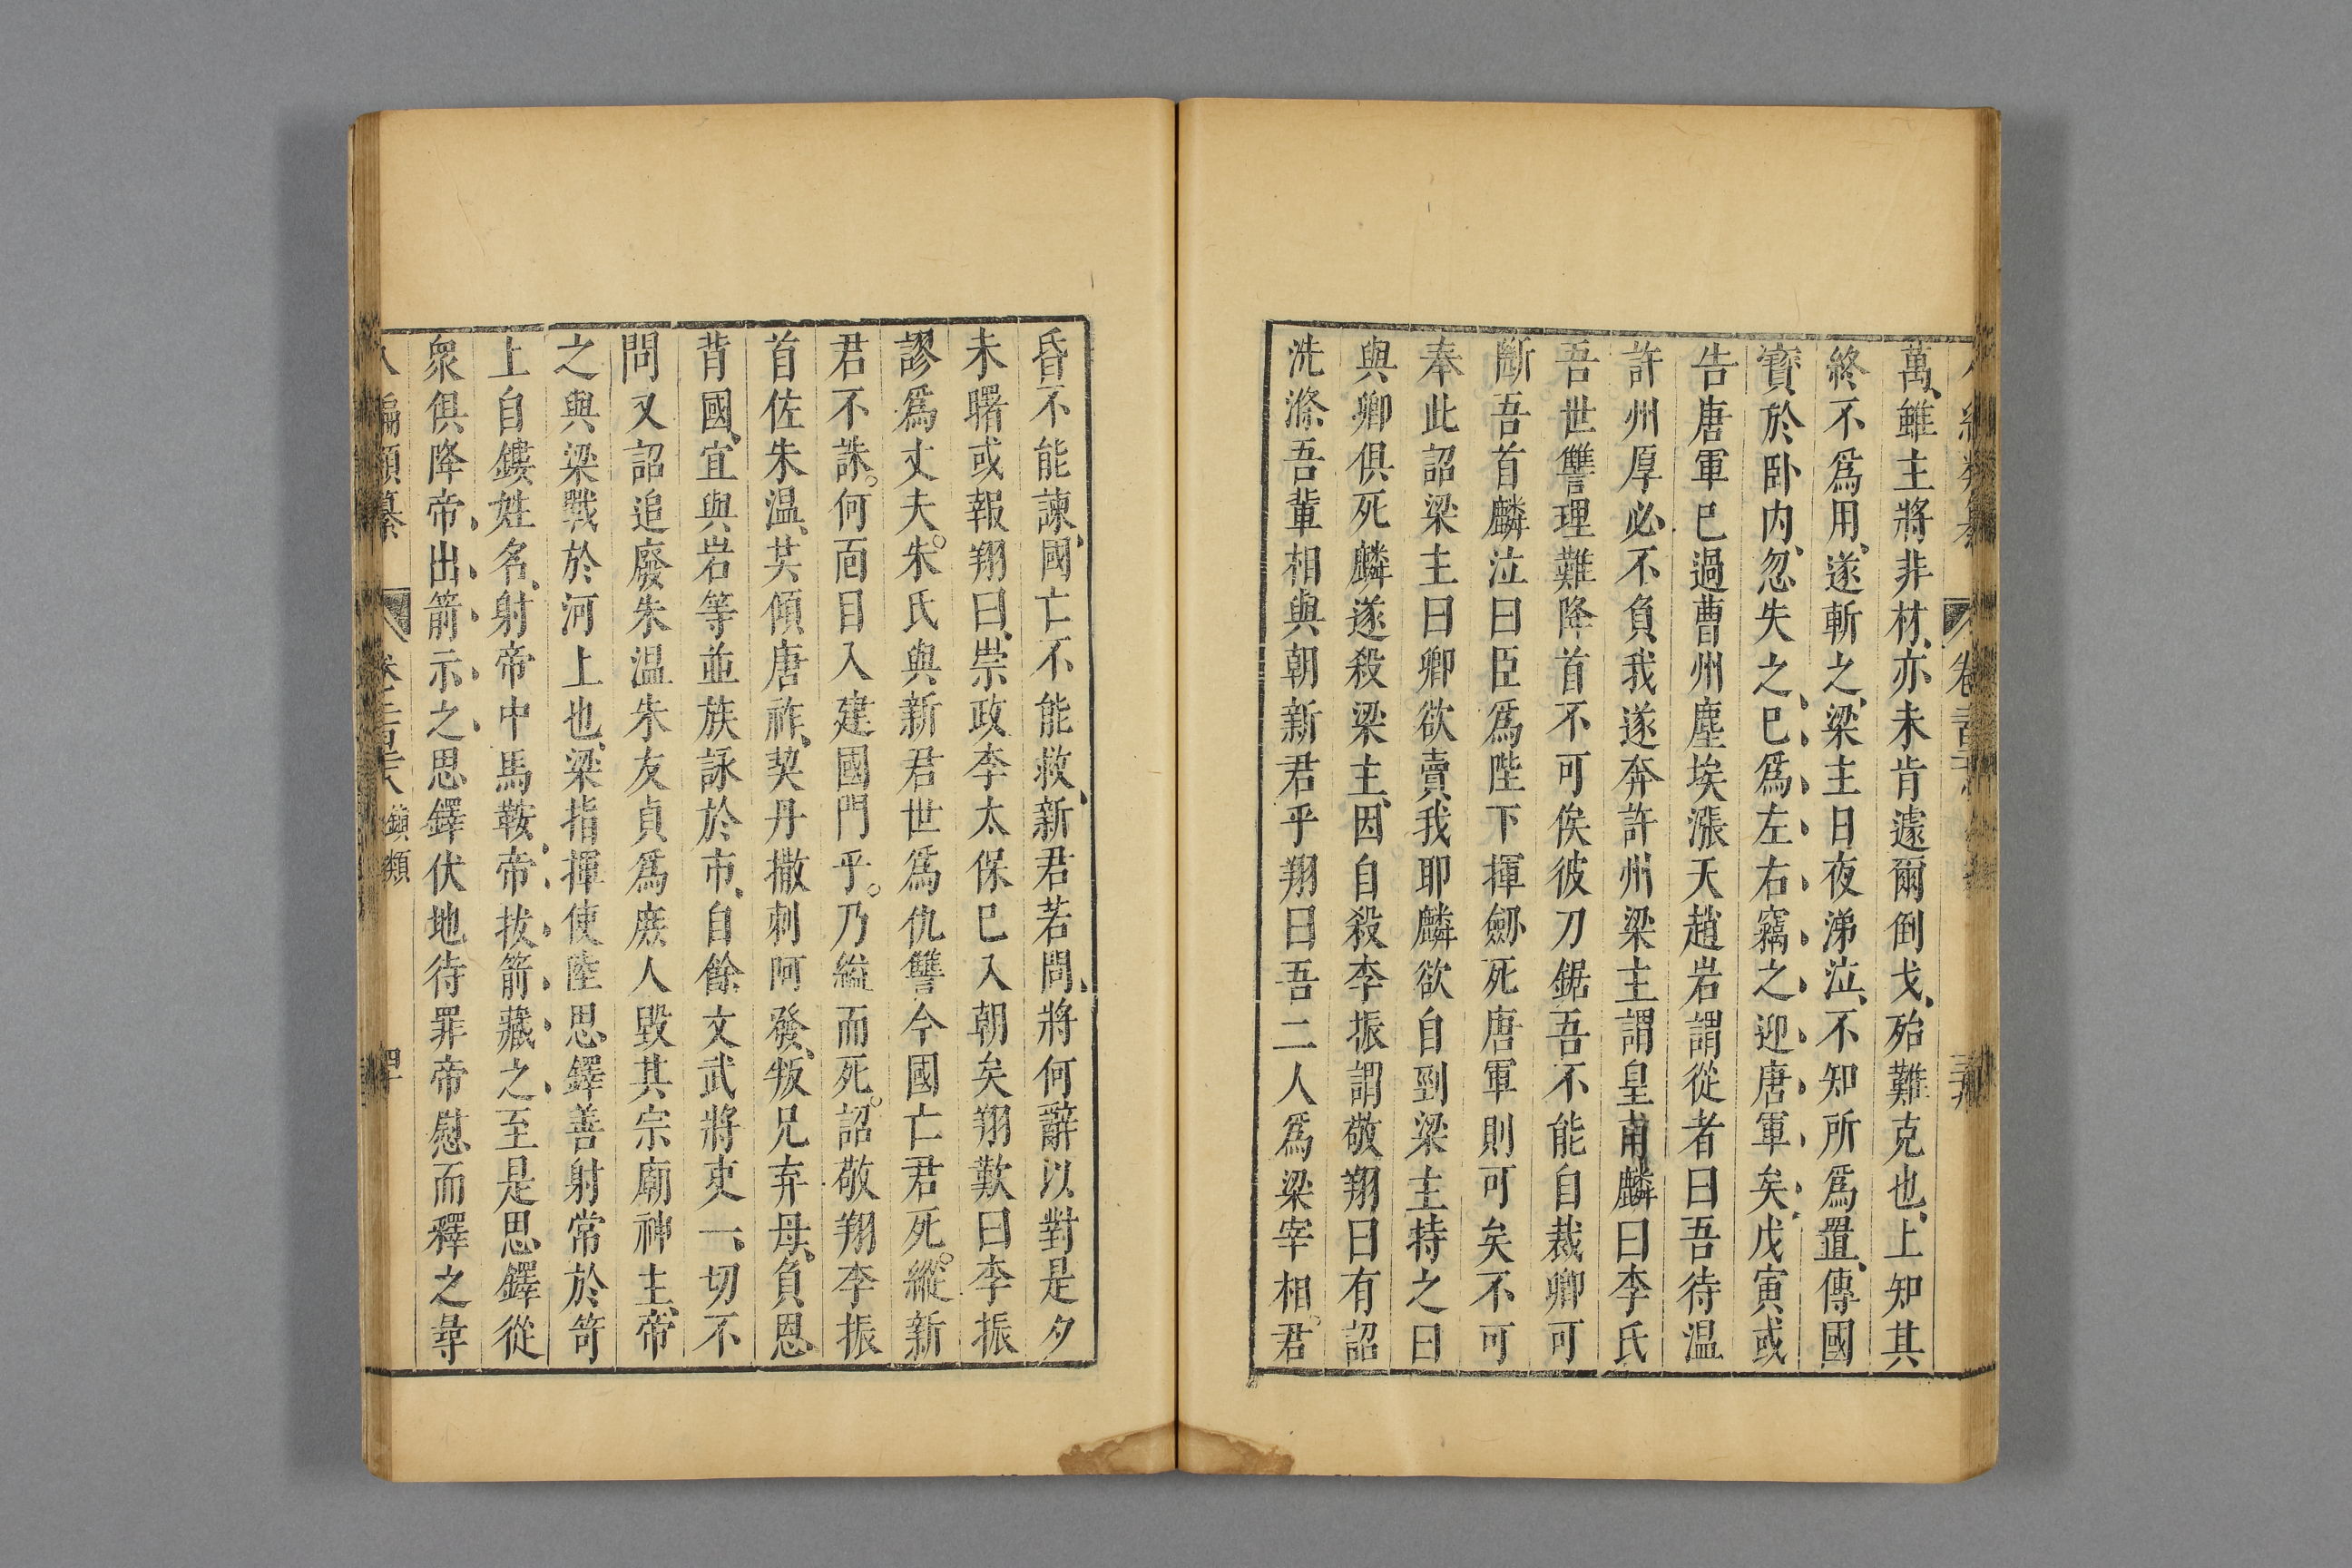 萬雖主將非材亦未肯遽爾倒戈殆難克也上知其
終不爲用遂斬之梁主日夜涕泣不知所爲置傳國
寶於臥内忽失之已爲左右竊之迎唐軍矣戊寅或
告唐軍已過曹州塵埃漲天趙岩謂從者曰吾待温
許州厚必不負我遂奔許州梁主謂皇甫麟曰李氏
吾世讐理難降首不可俟彼刀鋸吾不能自裁卿可
斷吾首麟泣曰臣爲陛下揮劒死唐軍則可矣不可
奉此詔梁主曰卿欲賣我耶麟欲自剄梁主持之曰
與卿俱死麟遂殺梁主因自殺李振謂敬翔曰有詔
洗滌吾輩相與朝新君乎翔曰吾二人爲梁宰相君
昏不能諫國亡不能救新君若問將何辭以對是夕
未曙或報翔曰崇政李太保已入朝矣翔歎曰李振
謬爲丈夫朱氏與新君世爲仇讐今國亡君死縱新
君不誅何面目入建國門乎乃縊而死詔敬翔李振
首佐朱温其傾唐祚契丹撒剌阿發叛兄弃母負恩
背國宜與岩等並族詠於市自餘文武將吏一切不
問又詔追廢朱温朱友貞爲庶人毀其宗廟神主帝
之與梁戰於河上也梁指揮使陸思鐸善射常於笴
上自鏤姓名射帝中馬鞍帝拔箭藏之至是思鐸從
衆俱降帝出箭示之思鐸伏地待罪帝慰而釋之尋
八編類纂 卷二百六 鎮類 四十